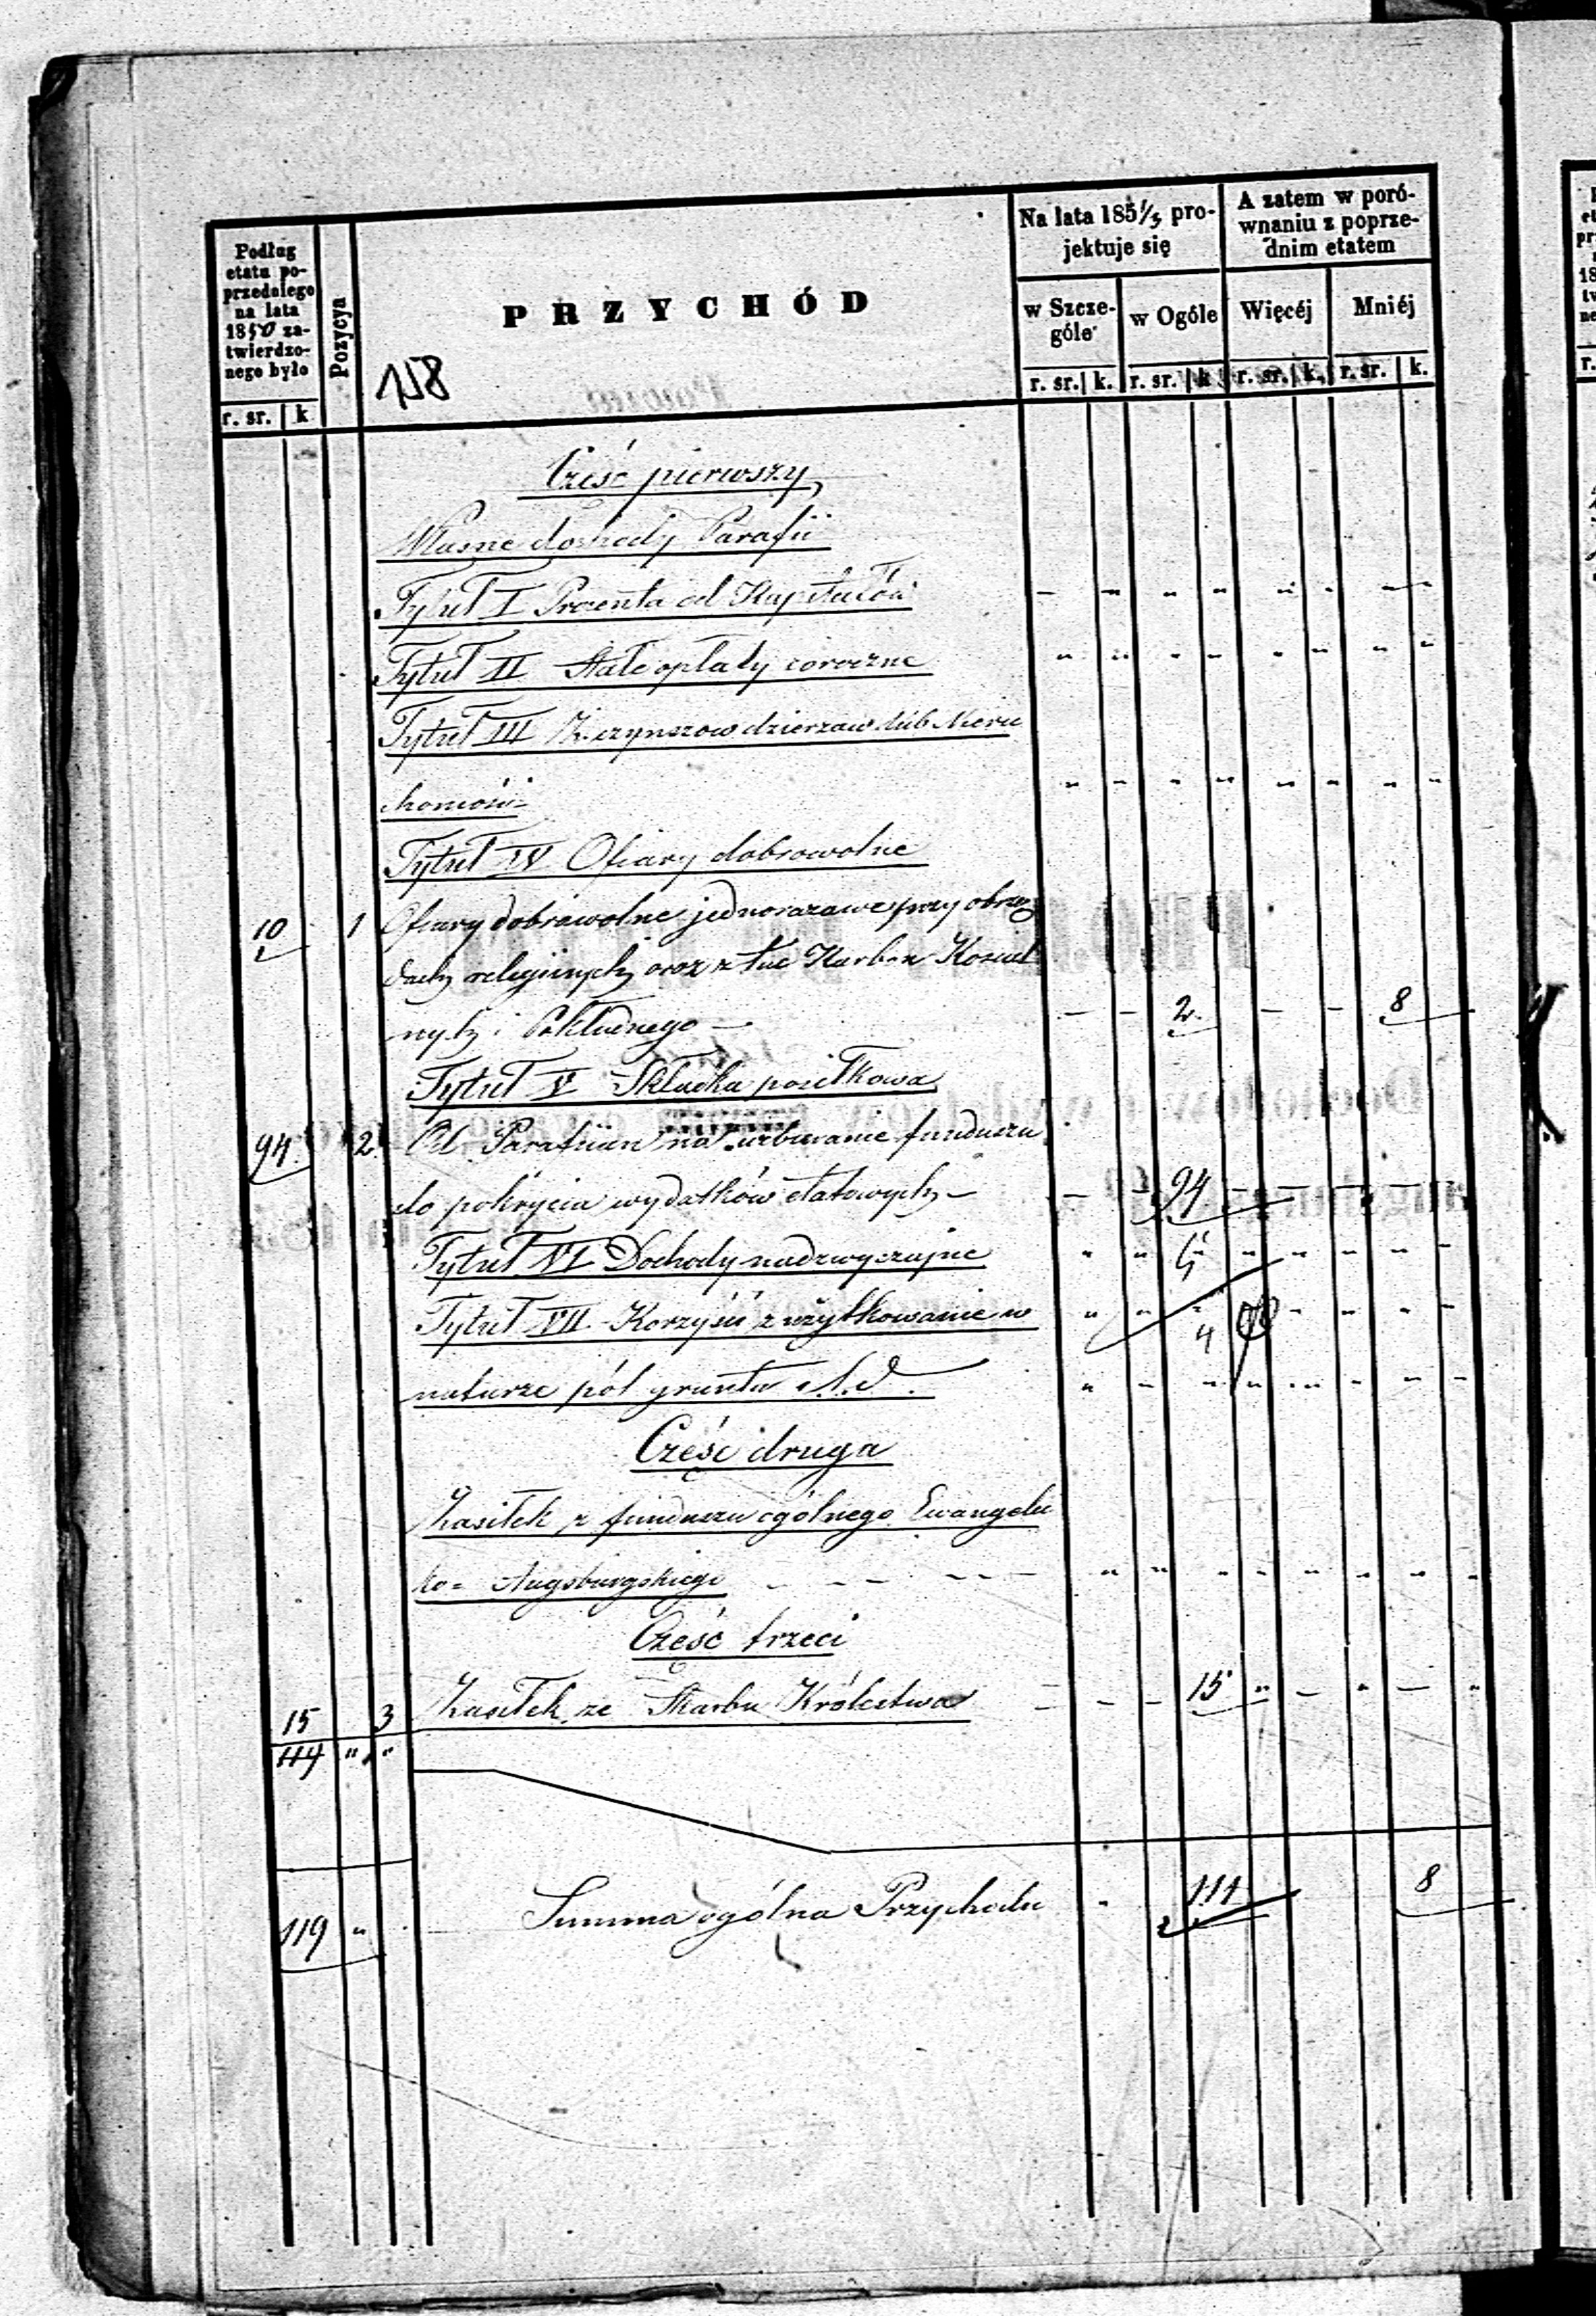 Podług
etatu po-
przedniego
na lata
1850 za-
twierdzo-
nego było
r. sr. k
Pozycya
PRZYCHÓD
158
Na lata 185 1/3 pro-
jektuje się
w Szcze-
góle
r. sr. k.
w Ogóle
r. sr. k
A zatem w poró-
wnaniu z poprze-
dnim etatem
Więcéj
r. sr. k.
Mniéj
r. sr. k.
Cześć pierwszy
Własne dochody Parafii
Tytuł I Procenta od Kapitałów
Tytuł II Stałe opłaty coroczne
Tytuł III Z czynszow dzierzaw lub Nieru
chomości
Tytuł IV Ofiary dobrowolne
10 1 Ofiary dobrowolne jednorazawe przy obrzę
dach religijnych oraz z Karbon Kościel
nych i Pokładnego 2 8
Tytuł V Składka posiłkowa
94 2 Od Parafiian na uzbieranie funduszu
do pokrycia wydatków etatowych 94
Tytuł VI Dochody nadzwyczajne
Tytuł VII Korzyści z użytkowanie w
naturze pól gruntu i t. d.
Cześć druga
Zasiłek z funduszu ogólnego Ewangelic
ko= Augsburgskiego
Cześć trzeci
15 3 Zasiłek ze Skarbu Królestwa 15
114 " "
119 " Summa ogólna Przychodu 111 8